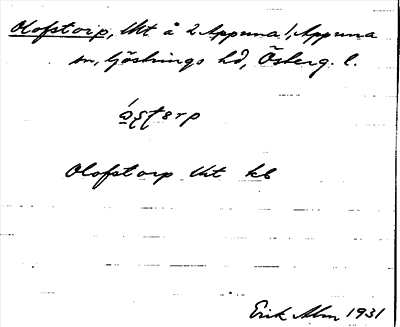 Olofstorp, Uht å 2 Appuna!, Appuna
sn, Göstrings hd, Österg. l.
Olofstorp Uht kb
Erik Alm 1931